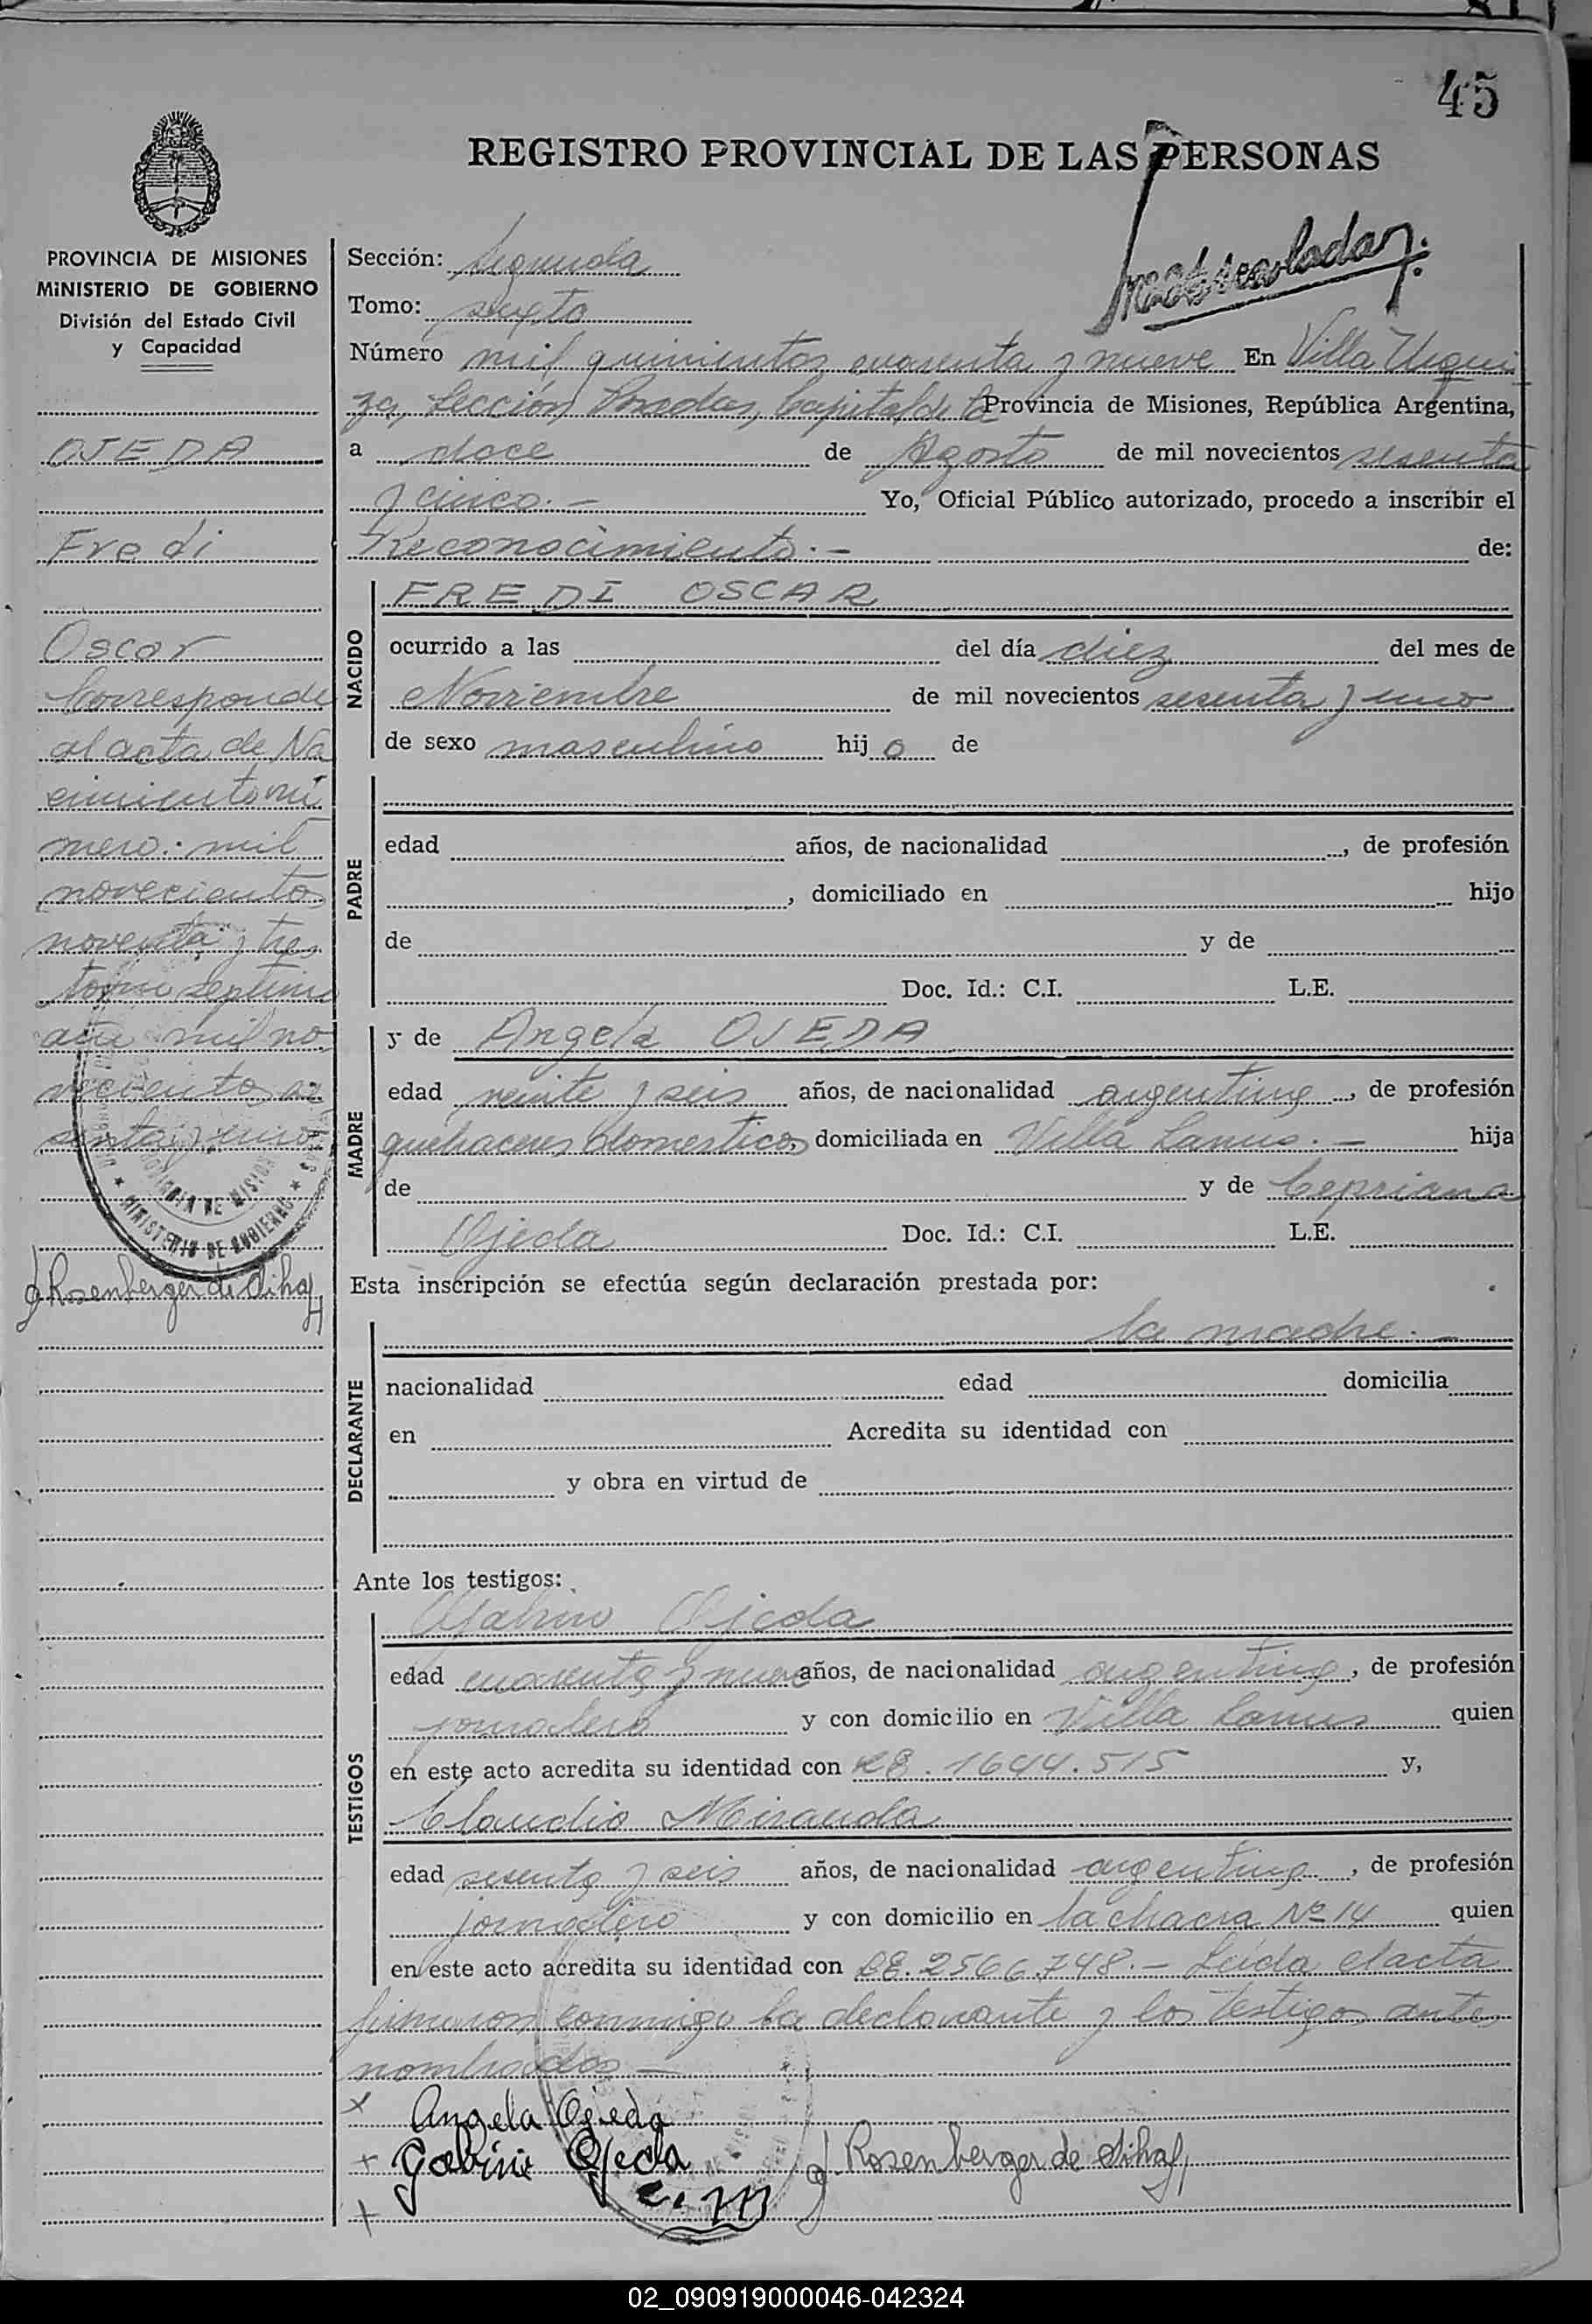 45
REGISTRO PROVINCIAL DE LAS PERSONAS
PROVINCIA DE MISIONES
MINISTERIO DE GOBIERNO
División del Estado Civil
y Capacidad
OJEDA
Fredi
Oscar
Corresponde
al acta de Na
cimiento nú
mero: mil
novecientos
noventa y tres
tomo septimo
año mil no
vecientos se
senta y uno
MINISTERIO DE GOBIERNO
J Rosenberger de Sihaf
Matriculado
Sección: Segunda
Tomo: sexto
Número mil quinientos cuarenta y nueve En Villa Urqui
za, Sección Posadas, Capital de la Provincia de Misiones, República Argentina,
a doce de Agosto de mil novecientos sesenta
y cinco.- Yo, Oficial Público autorizado, procedo a inscribir el
Reconocimiento.- de:
NACIDO
FREDI OSCAR
ocurrido a las del día diez del mes de
Noviembre de mil novecientos sesenta y uno
de sexo masculino hijo de
PADRE
edad años, de nacionalidad , de profesión
, domiciliado en hijo
de y de
Doc. Id.: C.I. L.E.
MADRE
y de Angela OJEDA
edad veinte y seis años, de nacionalidad argentina, de profesión
quehaceres domesticos domiciliada en Villa Lanus.- hija
de y de Cepriana
Ojeda Doc. Id.: C.I. L.E.
Esta inscripción se efectúa según declaración prestada por:
la madre.-
DECLARANTE
nacionalidad edad domicilia
en Acredita su identidad con
y obra en virtud de
Ante los testigos:
TESTIGOS
Ojeda
edad cuarenta y nueve años, de nacionalidad argentina, de profesión
jornalero y con domicilio en Villa Lanus quien
en este acto acredita su identidad con 1644.515 y,
Claudio Miranda
edad sesenta y seis años, de nacionalidad argentina, de profesión
jornalero y con domicilio en la chacra Nº 14 quien
en este acto acredita su identidad con 2566.748.- Leída el acta
firmaron conmigo la declarante y los testigos ante
nombrados -
x Angela Ojeda
+ Gabino Ojeda J. Rosenberger de Sihaf
+ C. M
02_090919000046-042324